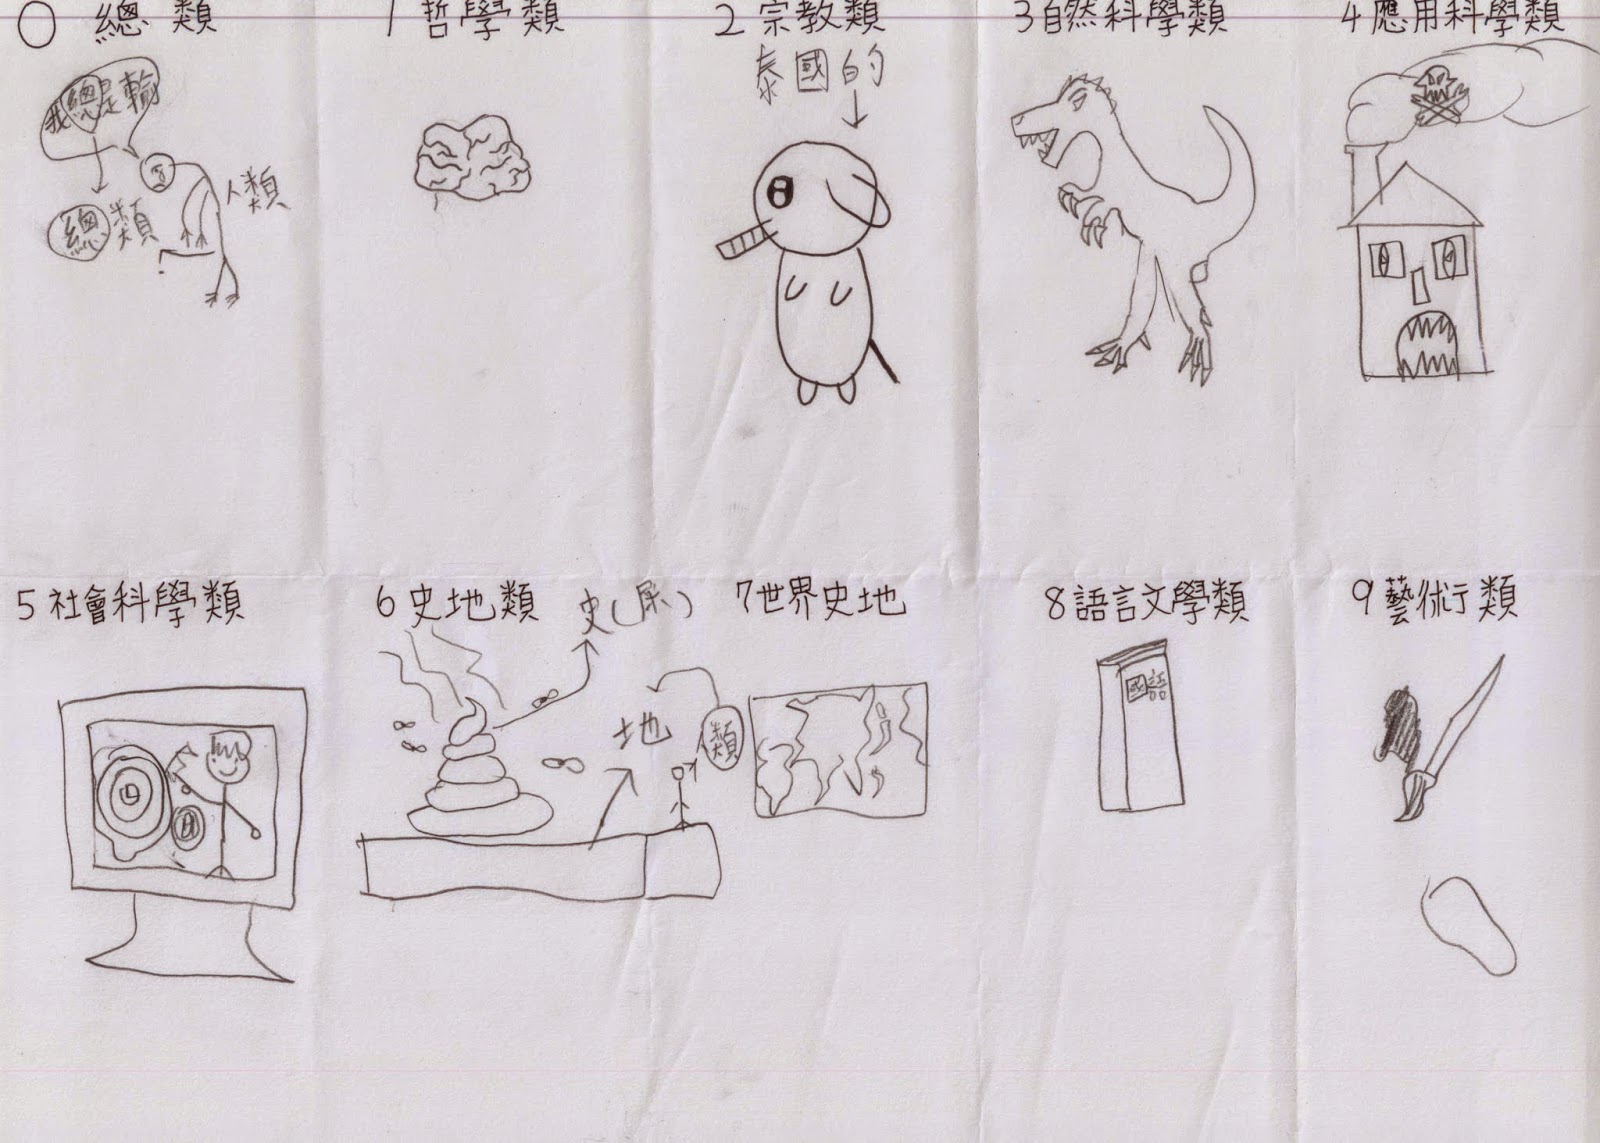 0 總類
我總是輸
總類
人類
1 哲學類
2 宗教類
泰國的
3 自然科學類
4 應用科學類
5 社會科學類
6 史地類
史(屎)
地
類
7 世界史地
8 語言文學類
國語
9 藝術行類